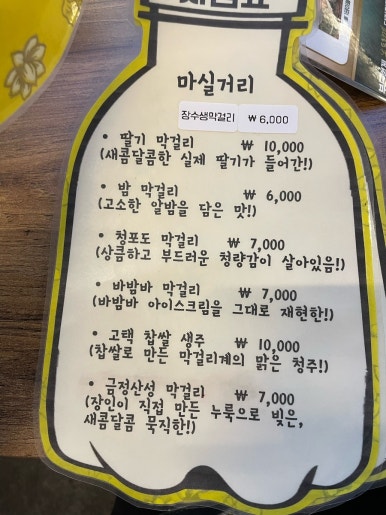 마실거리
장수생막걸리 ₩ 6,000
• 딸기 막걸리 ₩ 10,000
(새콤달콤한 실제 딸기가 들어간!)
• 밤 막걸리 ₩ 6,000
(고소한 알밤을 담은 맛!)
• 청포도 막걸리 ₩ 7,000
(상큼하고 부드러운 청량감이 살아있음!)
• 바밤바 막걸리 ₩ 7,000
(바밤바 아이스크림을 그대로 재현한!)
• 고택 찹쌀 생주 ₩ 10,000
(찹쌀로 만든 막걸리계의 맑은 청주!)
• 금정산성 막걸리 ₩ 7,000
(장인이 직접 만든 누룩으로 빚은,
새콤달콤 묵직한!)